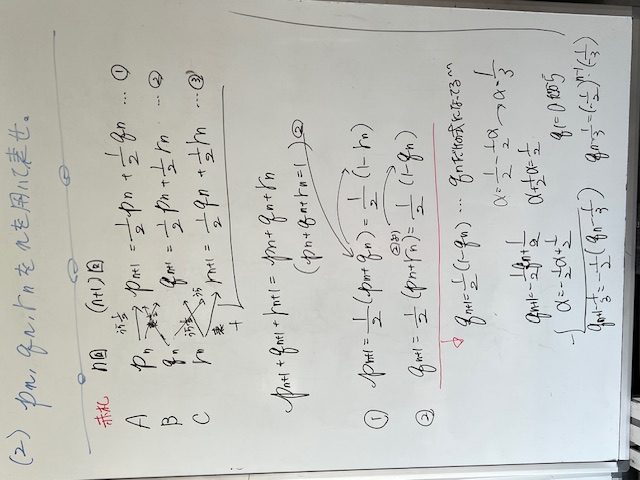 (2) pn, qn, rn を n を用いて表せ。
赤札 n回 (n+1)回
A pn pn+1 = 1/2 pn + 1/2 qn … ①
B qn qn+1 = 1/2 pn + 1/2 rn … ②
C rn rn+1 = 1/2 qn + 1/2 rn … ③
+
pn+1 + qn+1 + rn+1 = pn + qn + rn
(pn + qn + rn = 1)
① pn+1 = 1/2 (pn + qn) = 1/2 (1 - rn)
② qn+1 = 1/2 (pn + rn) = 1/2 (1 - qn)
qn+1 = 1/2 (1 - qn) …
qn+1 = -1/2 qn + 1/2
α = -1/2 α + 1/2
qn+1 - 1/3 = -1/2 (qn - 1/3)
α = 1/2 - 1/2 α → α = 1/3
α + 1/2 α = 1/2
q1 = 0 だから
qn - 1/3 = (-1/2)^n-1 · (-1/3)